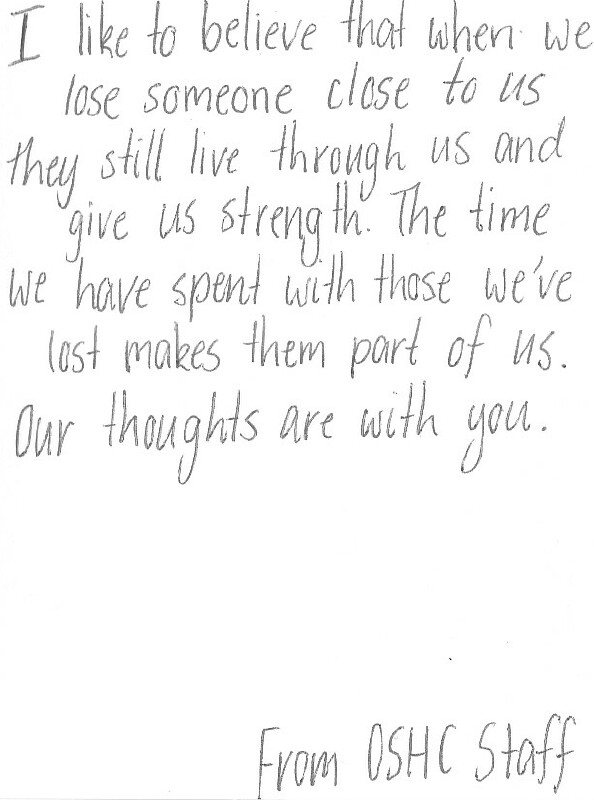 I like to believe that when we
lose someone close to us
they still live through us and
give us strength. The time
we have spent with those we've
lost makes them part of us.
Our thoughts are with you.
From OSHC Staff